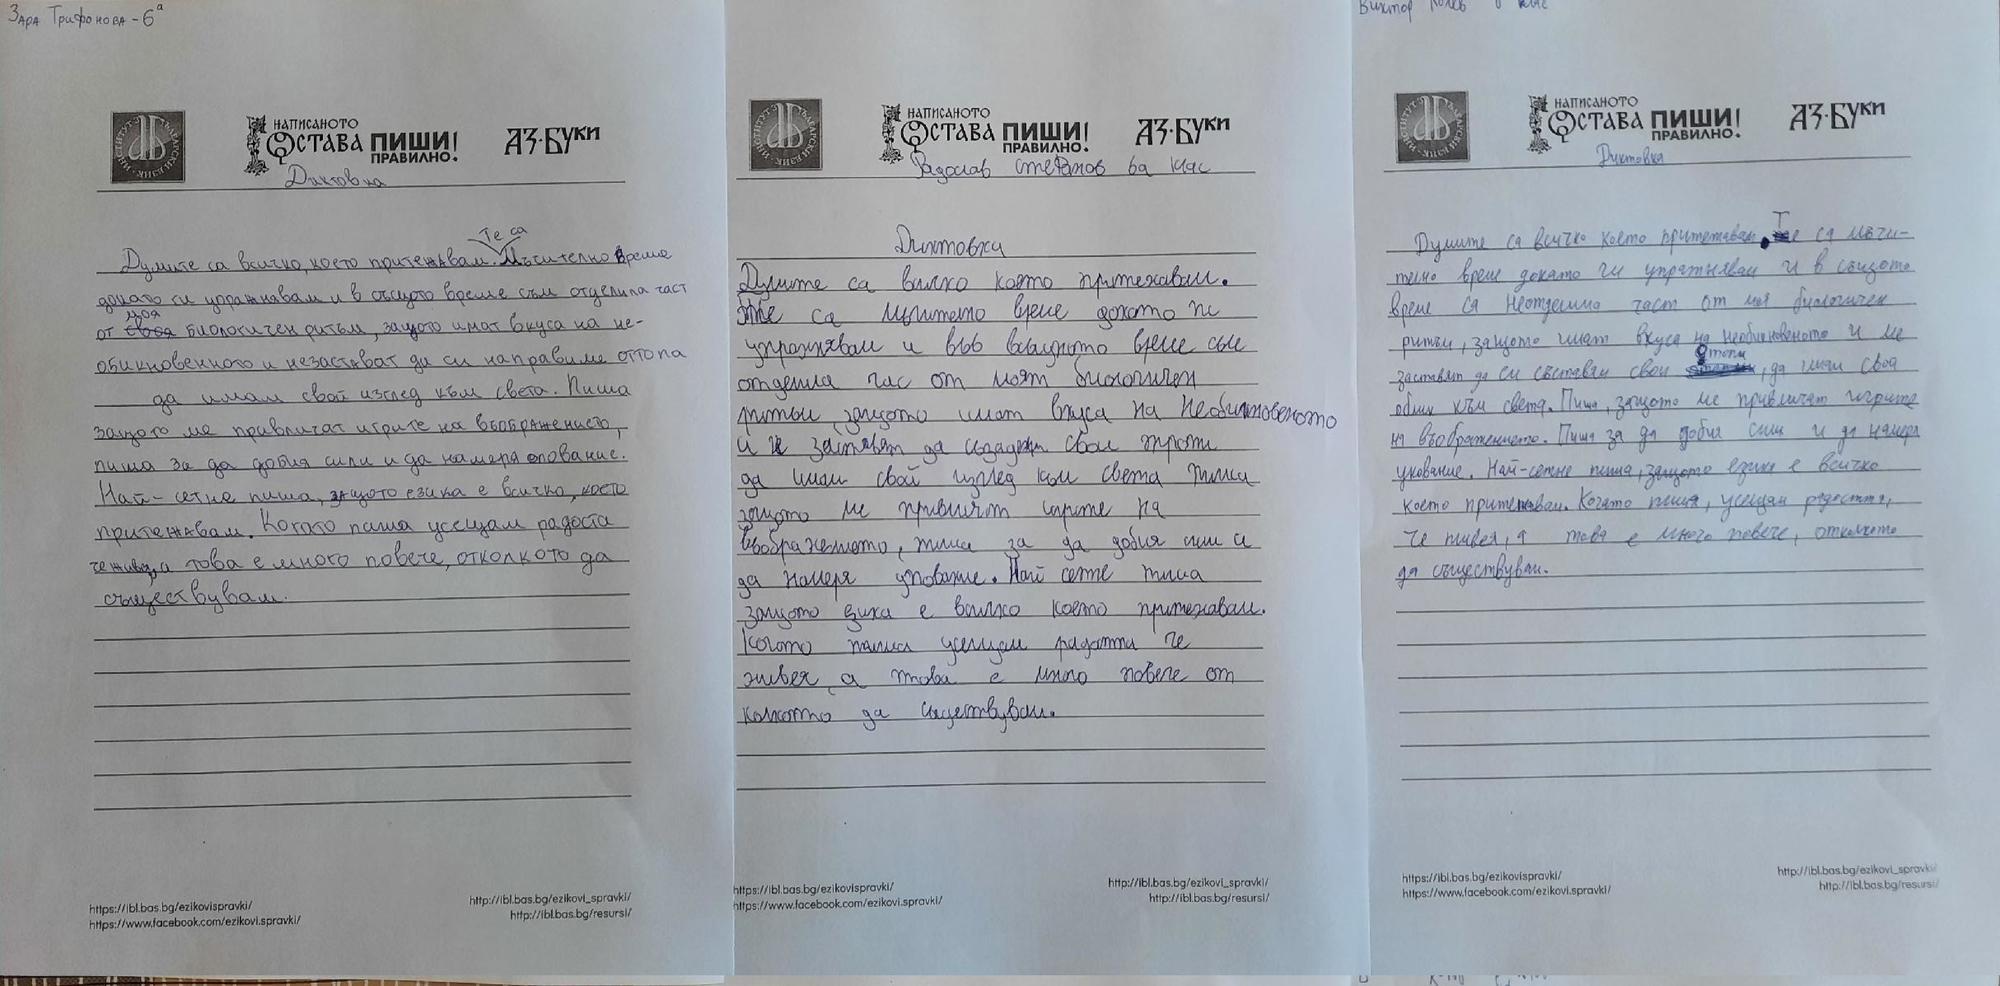 Зара Трифонова - 6а
НАПИСАНОТО
ОСТАВА ПИШИ!
ПРАВИЛНО!
АЗ·БУКИ
Диктовка
Те са
Думите са всичко, което притежавам. Мъчително време
докато ги упражнавам и в същото време съм отделила част
моя
от своя биологичен ритъм, защото имат вкуса на не-
обикновенното и незаставват да си направиме оттопа
да имам свой изглед към света. Пиша
защото ме привличат игрите на въображението,
пиша за да добия сили и да намеря опование.
Най-сетне пиша, защото езика е всичко, което
притежавам. Когато пиша усещам радоста
че живея, а това е много повече, отколкото да
съществувам.
https://ibl.bas.bg/ezikovispravki/
https://www.facebook.com/ezikovi.spravki/
http://ibl.bas.bg/ezikovi_spravki/
http://ibl.bas.bg/resursi/
НАПИСАНОТО
ОСТАВА ПИШИ!
ПРАВИЛНО!
АЗ·БУКИ
Радослав Стефанов 6а клас
Диктовка
Думите са всичко което притежавам.
Те са мъчително време докато ги
упражнявам и във същото време съм
отделила час от моят биологичен
ритъм защото имат вкуса на необикновеното
и ме заставят да създадем свои тропи
да имам свой изглед към света пиша
защото ме привличат игрите на
въображението, пиша за да добия сили и
да намеря упование. Най сетне пиша
защото езика е всичко което притежавам.
Когато пиша усещам радостта че
живея, а това е много повече от
колкото да съществувам.
https://ibl.bas.bg/ezikovispravki/
https://www.facebook.com/ezikovi.spravki/
http://ibl.bas.bg/ezikovi_spravki/
http://ibl.bas.bg/resursi/
Виктор Колев 6 клас
НАПИСАНОТО
ОСТАВА ПИШИ!
ПРАВИЛНО!
АЗ·БУКИ
Диктовка
Думите са всичко което притежавам. Те са мъчи-
телно време докато ги упражнявам и в същото
време са неотделима част от моя биологичен
ритъм, защото имат вкуса на необикновеното и ме
заставят да си съставям свои утопии, да имам своя
облик към света. Пиша, защото ме привличат игрите
на въображението. Пиша за да добия сили и да намеря
упование. Най-сетне пиша, защото езика е всичко
което притежавам. Когато пиша, усещам радостта,
че живея, а това е много повече, отколкото
да съществувам.
https://ibl.bas.bg/ezikovispravki/
https://www.facebook.com/ezikovi.spravki/
http://ibl.bas.bg/ezikovi_spravki/
http://ibl.bas.bg/resursi/